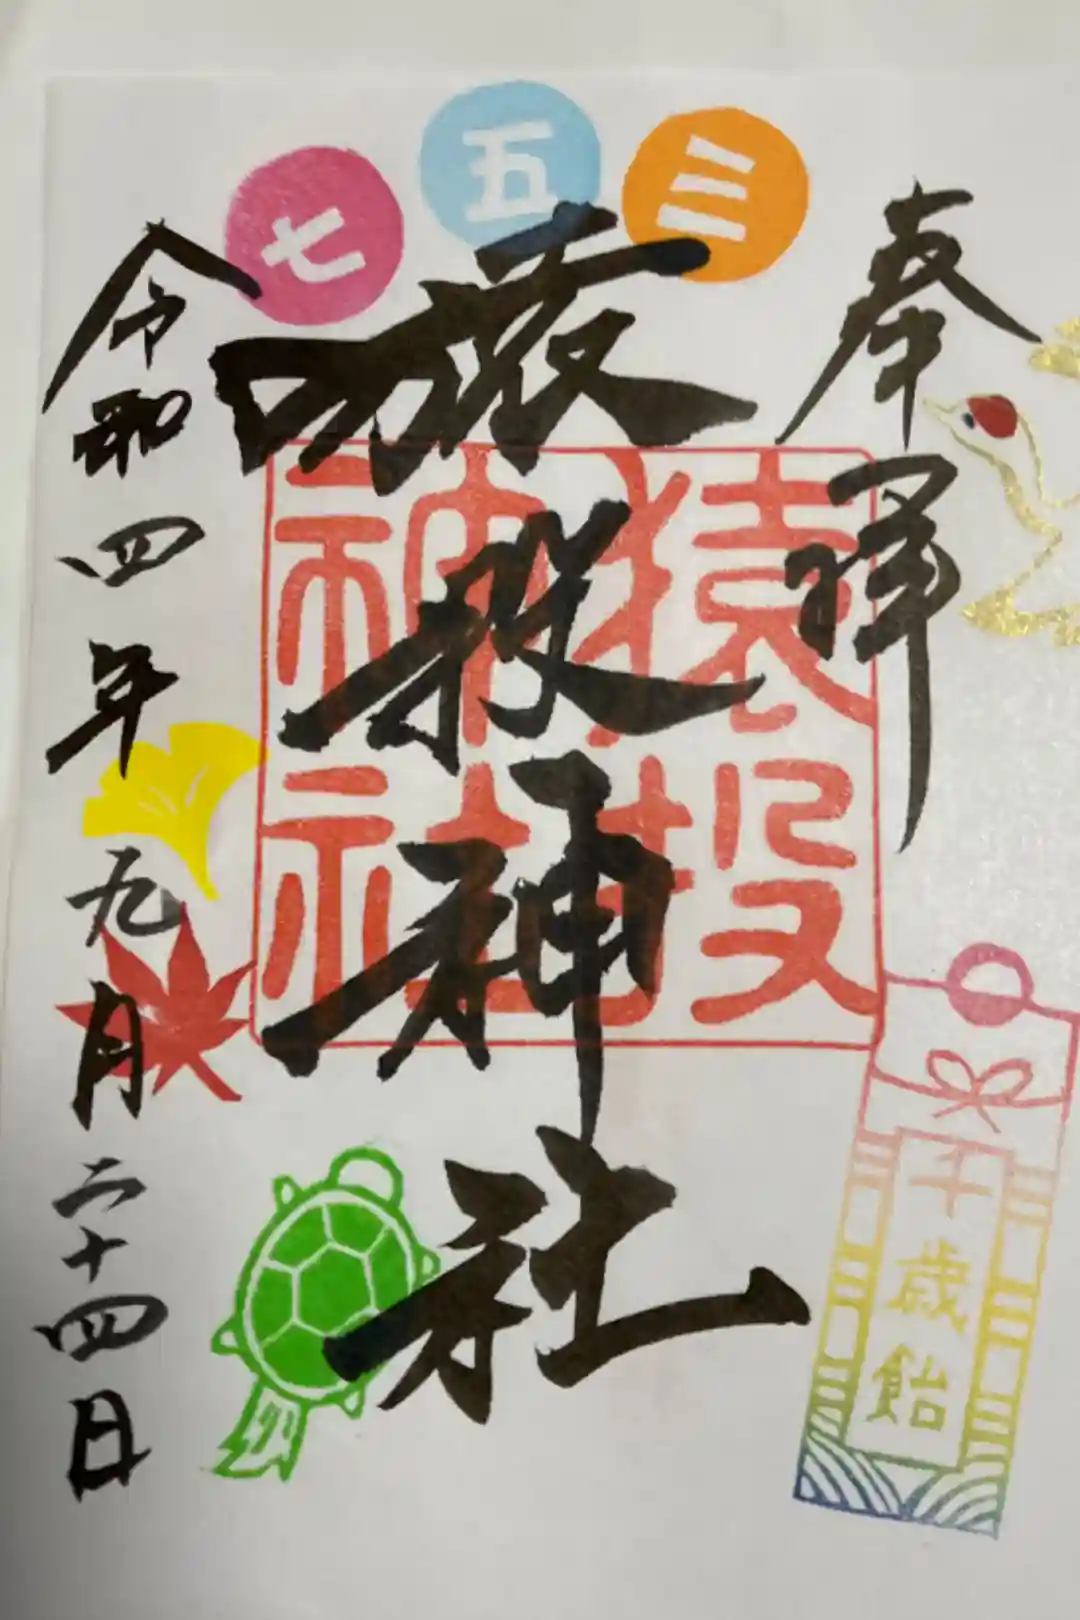 七五三
奉拝
猿投神社
猿投
神社
令和四年九月二十四日
千歳飴